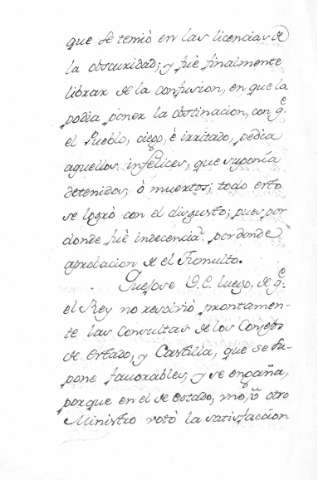 que se temió en las licencias de
la obscuridad; y fue finalmente
librar de la confusion, en que la
podia poner la obstinacion, con q.e
el Pueblo, ciego, è irritado, pedia
aquellos infelices, que suponia
detenidos, ò muertos; todo esto
se logrò con el disgusto; pues por
donde fuè indecencia por donde
aprobacion de el Tomulto.
Quejose V.E. luego, de q.e
el Rey no resolviò prontamen-
te las Consultas de los Consejos
de Estado, y Castilla, que se su-
pone favorables, y se engaña,
porque en el de estado, uno, ù otro
Ministro votò la satisfaccion